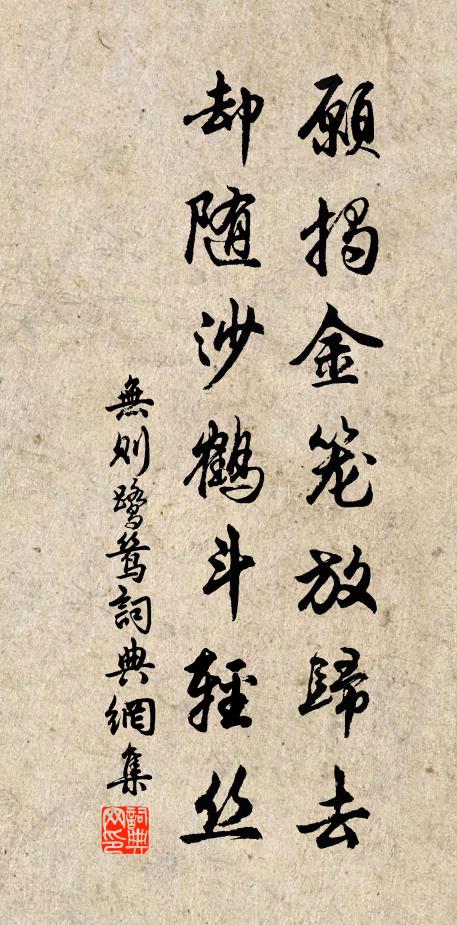 願揭金笼放歸去
却随沙鶴斗輕丝
無则鹭鸶詞典網集
詞典网印